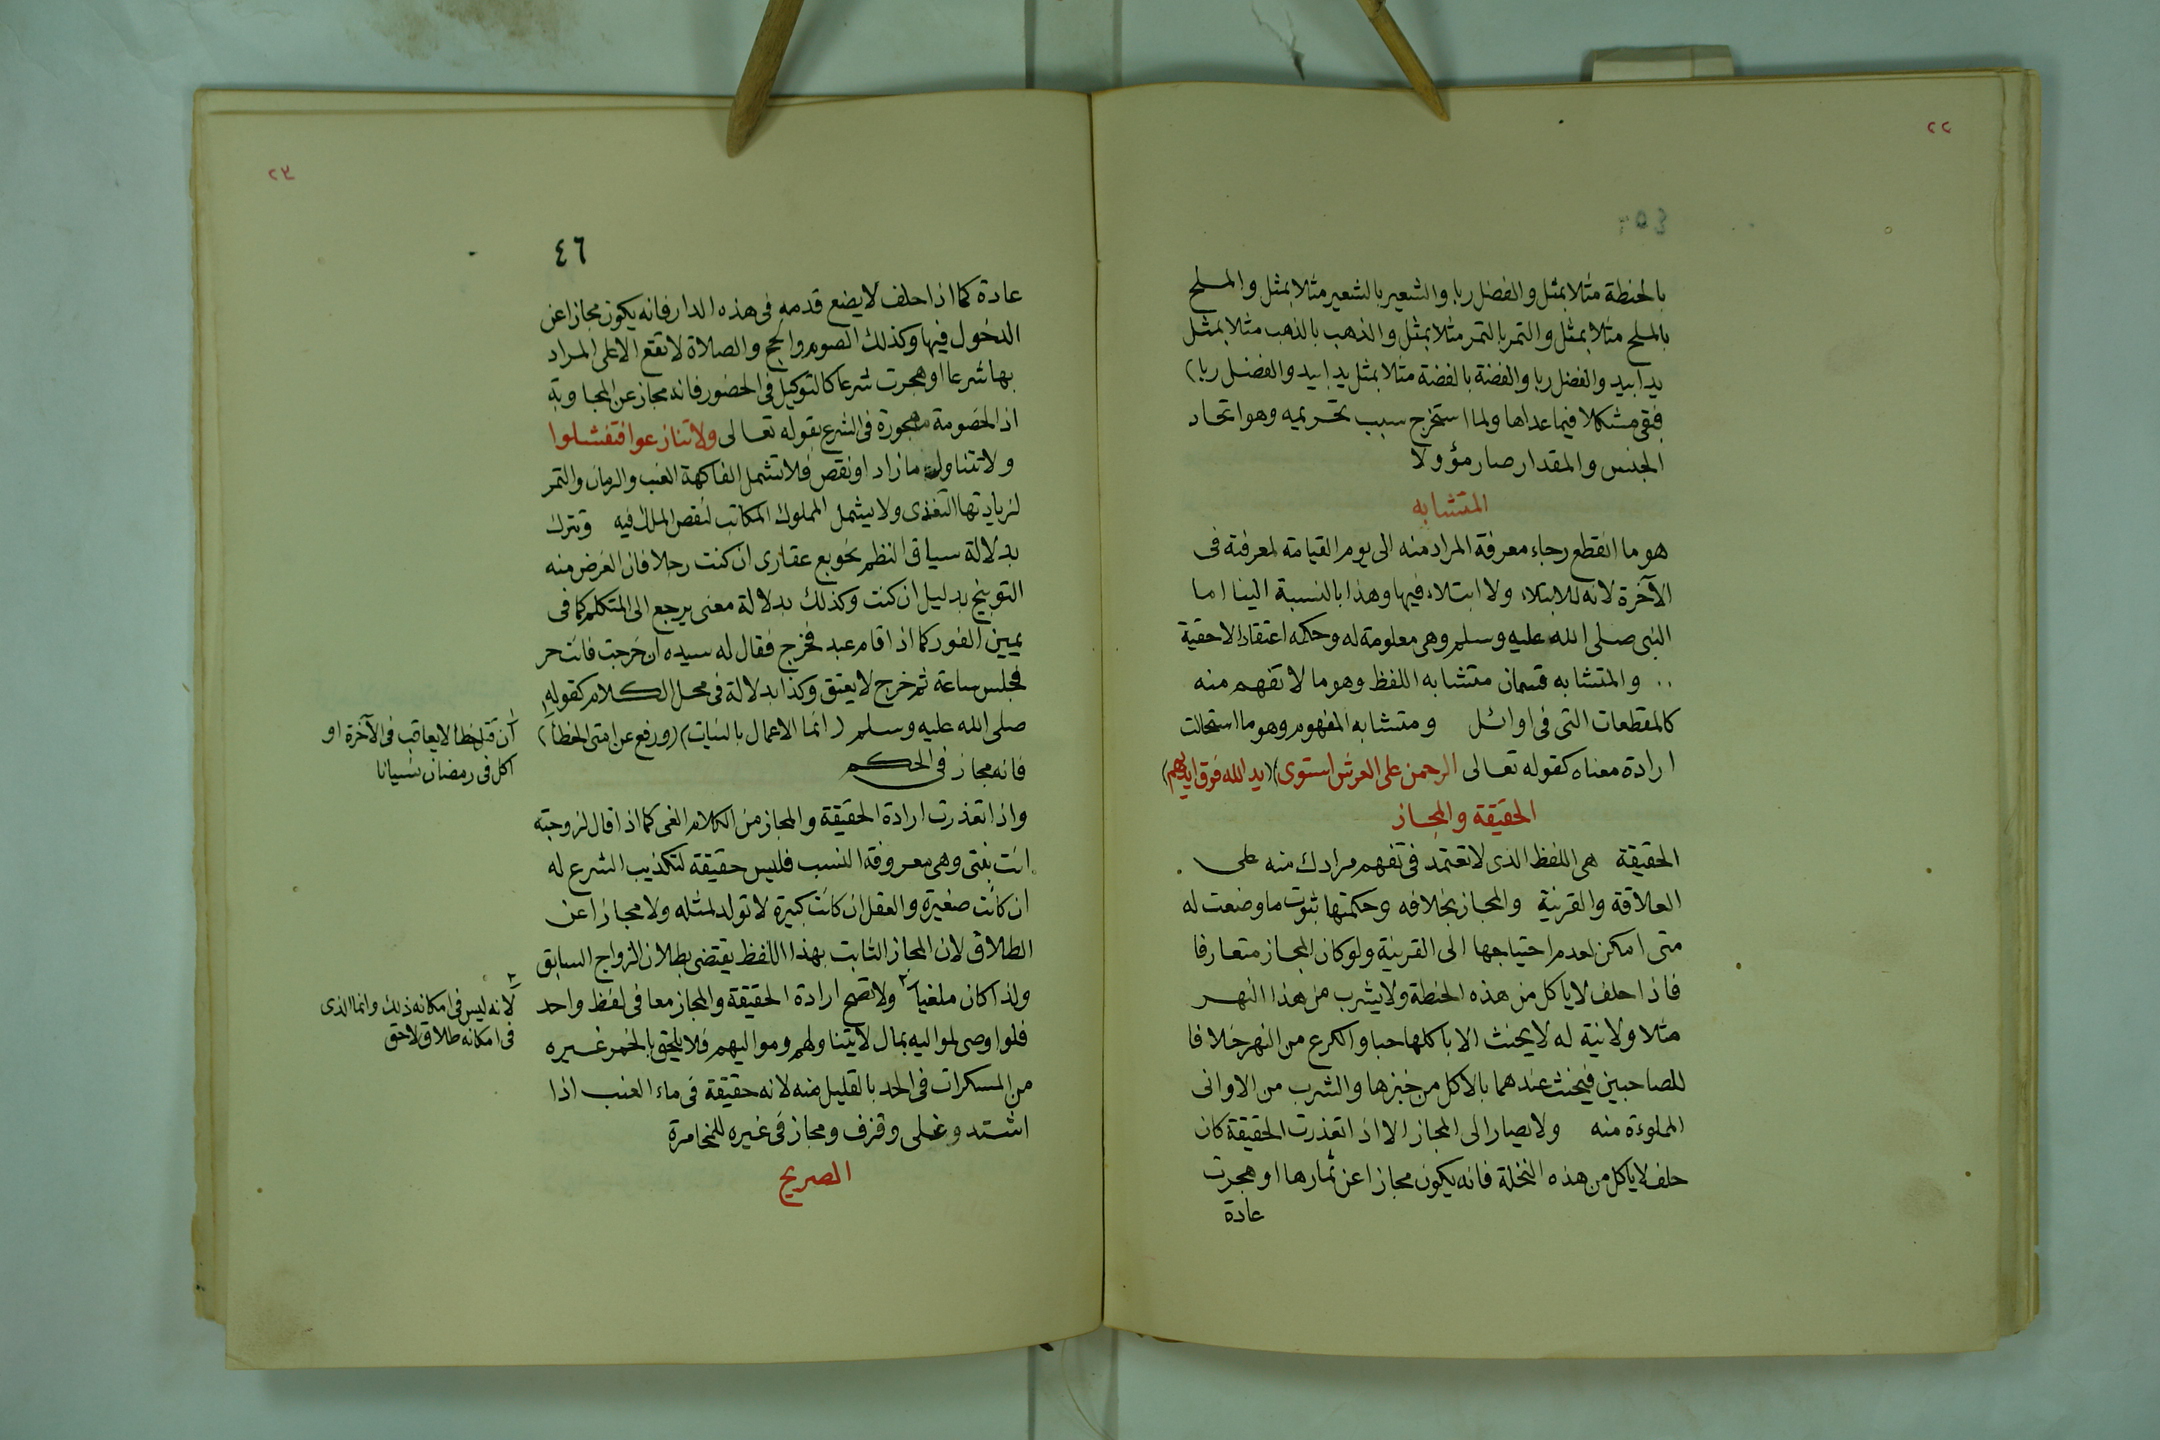 ٢٢
٤٥
بالحنطة مثلا بمثل والفضل ربا والشعير بالشعير مثلا بمثل والملح
بالملح مثلا بمثل والتمر بالتمر مثلا بمثل والذهب بالذهب مثلا بمثل
يدا بيد والفضل ربا والفضة بالفضة مثلا بمثل يدا بيد والفضل ربا)
فبقى مشكلا فيما عداها ولما استخرج سبب تحريمه وهو اتحاد
الجنس والمقدار صار مؤولا
المتشابه
هو ما انقطع رجاء معرفة المراد منه الى يوم القيامة لمعرفته فى
الآخرة لانه للابتلاء ولا ابتلاء فيها وهذا بالنسبة الينا اما
النبى صلى الله عليه وسلم وهى معلومة له وحكمه اعتقاد الاحقية
.. والمتشابه قسمان متشابه اللفظ وهو ما لا تفهم منه
كالمقطعات التى فى اوائل ومتشابه المفهوم وهو ما استحالت
ارادة معناه كقوله تعالى الرحمن على العرش استوى) (يد الله فوق ايديهم)
الحقيقة والمجاز
الحقيقة هى اللفظ الذى لا تعتمد فى تفهم مرادك منه على
العلاقة والقرنية والمجاز بخلافه وحكمتها ثبوت ما وضعت له
متى امكن لعدم احتياجها الى القرنية ولو كان المجاز متعارفا
فاذا حلف لا ياكل من هذه الحنطة ولا يشرب من هذا النهر
مثلا ولا نية له لا يحنث الا باكلها حبا والكرع من النهر خلافا
للصاحبين فيحنث عندهما بالاكل من خبزها والشرب من الاوانى
المملوءة منه ولا يصار الى المجاز الا اذا تعذرت الحقيقة كان
حلف لا ياكل من هذه النخلة فانه يكون مجازا عن ثمارها او هجرت
عادة
٢٣
٤٦
عادة كما اذا حلف لا يضع قدمه فى هذه الدار فانه يكون مجازا عن
الدخول فيها وكذلك الصوم والحج والصلاة لا تقع الا على المراد
بها شرعا او هجرت شرعا كالتوكيل فى الحضور فانه مجاز عن المجاوبة
اذ الخصومة مهجورة فى الشرع بقوله تعالى ولا تنازعوا فتفشلوا
ولا تتناول ما زاد او نقص فلا تشمل الفاكهة العنب والرمان والتمر
لزيادتها التغذى ولا يشمل المملوك المكاتب لنقص الملك فيه وتترك
بدلالة سياق النظم نحو بع عقارى ان كنت رجلا فان الغرض منه
التوبيخ بدليل ان كنت وكذلك بدلالة معنى يرجع الى المتكلم كما فى
يمين الفور كما اذا قام عبد فخرج فقال له سيده ان خرجت فانت حر
فجلس ساعة ثم خرج لا يعتق وكذا بدلالة فى محل الكلام كقوله
صلى الله عليه وسلم (انما الاعمال بالنيات) (ورفع عن امتى الخطأ) ١
فانه مجاز فى الحكم
واذا تعذرت ارادة الحقيقة والمجاز من الكلام الغى كما اذا قال لزوجته
انت بنتى وهى معروفة النسب فليس حقيقة لتكذيب الشرع له
ان كانت صغيرة والعقل ان كانت كبيرة لا تولد لمثله ولا مجازا عن
الطلاق لان المجاز الثابت بهذا اللفظ يقتضى بطلان الزواج السابق
ولذا كان ملغيا ٢ ولا تصح ارادة الحقيقة والمجاز معا فى لفظ واحد
فلو اوصى لمواليه بمال لا يتناولهم ومواليهم فلا يلحق بالخمر غيره
من المسكرات فى الحد بالقليل منه لانه حقيقة فى ماء العنب اذا
اشتد وغلى وقذف ومجاز فى غيره للمخامرة
الصريح
١
ان قتل خطأ لا يعاقب فى الآخرة او
اكل فى رمضان نسيانا
٢
لانه ليس فى امكانه ذلك وانما الذى
فى امكانه طلاق لاحق